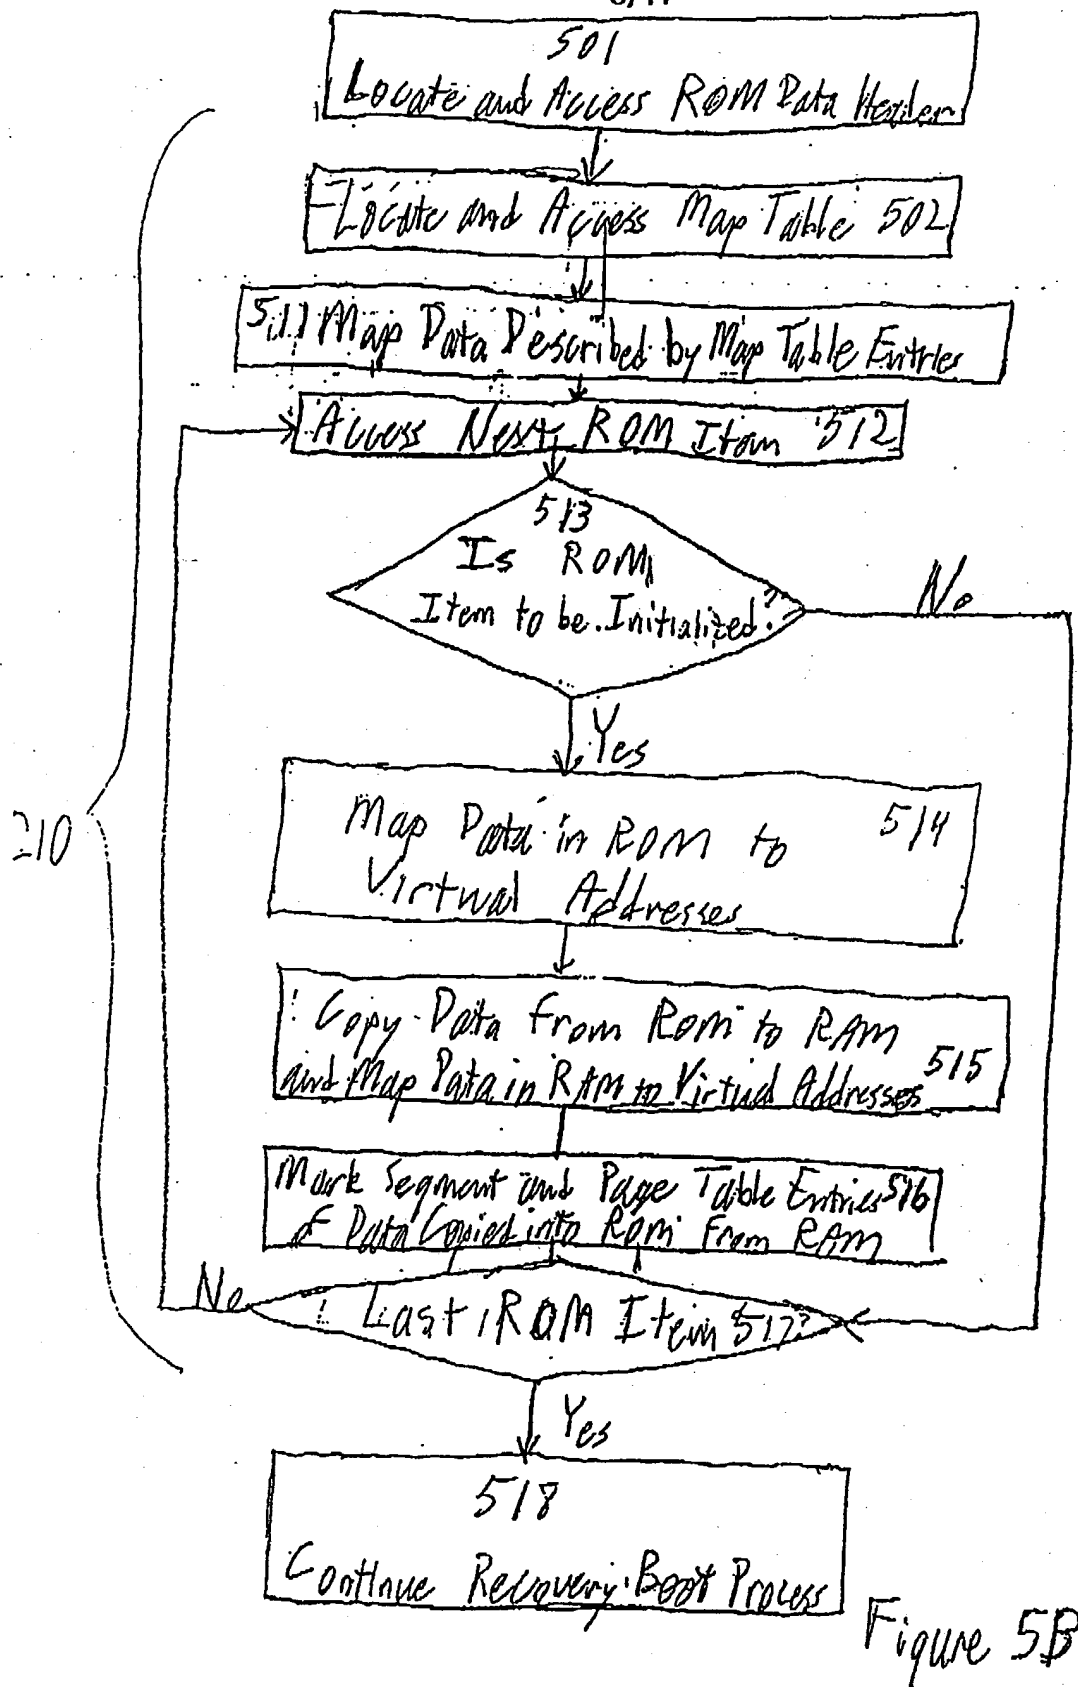 501
Locate and Access ROM Data Header
Locate and Access Map Table 502
511 Map Data Described by Map Table Entries
Access Next ROM Item 512
513
Is ROM
Item to be Initialized?
No
Yes
Map Data in ROM to 514
Virtual Addresses
210
Copy Data from ROM to RAM
and Map Data in RAM to Virtual Addresses 515
Mark Segment and Page Table Entries 516
of Data Copied into ROM From RAM
No
Last ROM Item 517?
Yes
518
Continue Recovery Boot Process
Figure 5B